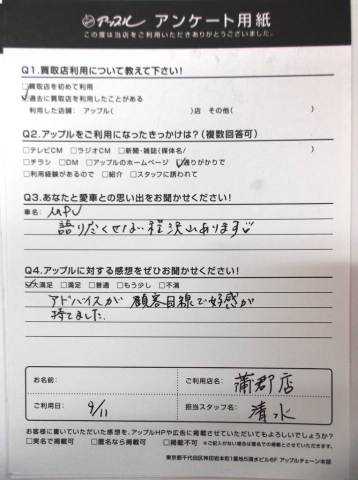 アップル アンケート用紙
この度は当店をご利用いただきありがとうございました。
Q1.買取店利用について教えて下さい!
□買取店を初めて利用
☑過去に買取店を利用したことがある
利用した店舗: アップル( )店 その他( )
Q2.アップルをご利用になったきっかけは?(複数回答可)
□テレビCM □ラジオCM □新聞・雑誌(媒体名/ )
□チラシ □DM □アップルのホームページ ☑通りがかりで
□利用経験があるので □紹介 □スタッフに誘われて
Q3.あなたと愛車との思い出をお聞かせください!
車名: MPV
語りだくせない程沢山あります
Q4.アップルに対する感想をぜひお聞かせください!
☑大満足 □満足 □普通 □もう少し □不満
アドバイスが顧客目線で好感が
持てました.
お名前:
ご利用店名: 蒲郡店
ご利用日: 9/11
担当スタッフ名: 清水
お客様に書いていただいた感想を、アップルHPや広告に掲載させていただいてもよろしいでしょうか?
□実名で掲載可 □匿名なら掲載可 □掲載不可 ※ご記入がない場合は匿名での掲載とさせていただきます。
東京都千代田区神田岩本町1番地5清水ビル6F アップルチェーン本部